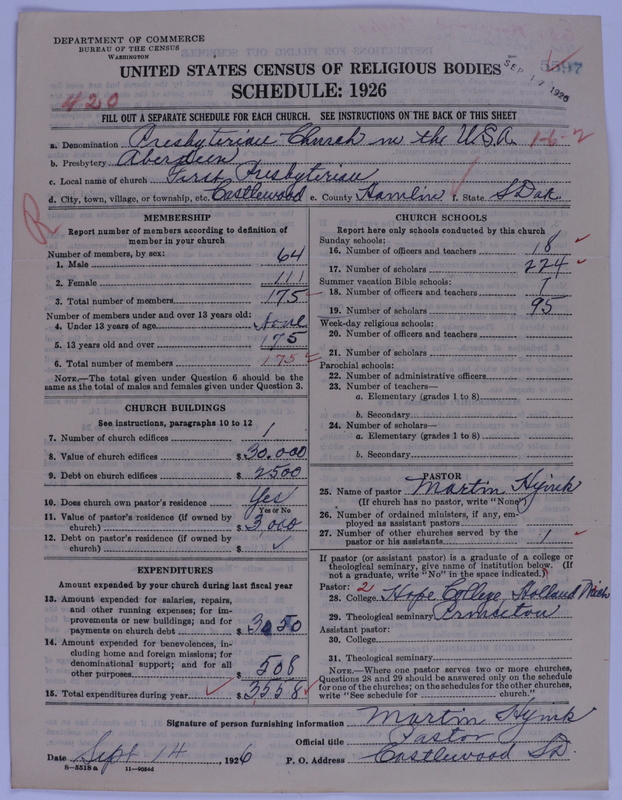 DEPARTMENT OF COMMERCE
BUREAU OF THE CENSUS
WASHINGTON
UNITED STATES CENSUS OF RELIGIOUS BODIES
SCHEDULE: 1926
SEP 17 1926
5597
420
FILL OUT A SEPARATE SCHEDULE FOR EACH CHURCH. SEE INSTRUCTIONS ON THE BACK OF THIS SHEET
a. Denomination Presbyterian Church in the U.S.A. 1-6-2
b. Presbytery Aberdeen
c. Local name of church First Presbyterian
d. City, town, village, or township, etc. Castlewood e. County Hamlin f. State S Dak.
R
MEMBERSHIP
Report number of members according to definition of
member in your church
Number of members, by sex:
1. Male 64
2. Female 111
3. Total number of members 175
Number of members under and over 13 years old:
4. Under 13 years of age None
5. 13 years old and over 175
6. Total number of members 175
NOTE.—The total given under Question 6 should be
same as the total of males and females given under Question 3.
CHURCH BUILDINGS
See instructions, paragraphs 10 to 12
7. Number of church edifices 1
8. Value of church edifices $ 30,000
9. Debt on church edifices $ 2500
10. Does church own pastor's residence Yes
Yes or No
11. Value of pastor's residence (if owned by
church) $ 3,000
12. Debt on pastor's residence (if owned by
church) $ ✓
EXPENDITURES
Amount expended by your church during last fiscal year
13. Amount expended for salaries, repairs,
and other running expenses; for im-
provements or new buildings; and for
payments on church debt $ 3050
14. Amount expended for benevolences, in-
cluding home and foreign missions; for
denominational support; and for all
other purposes $ 508
15. Total expenditures during year $ 3558
CHURCH SCHOOLS
Report here only schools conducted by this church
Sunday schools:
16. Number of officers and teachers 18
17. Number of scholars 224
Summer vacation Bible schools:
18. Number of officers and teachers 7
19. Number of scholars 95
Week-day religious schools:
20. Number of officers and teachers
21. Number of scholars
Parochial schools:
22. Number of administrative officers
23. Number of teachers—
a. Elementary (grades 1 to 8)
b. Secondary
24. Number of scholars—
a. Elementary (grades 1 to 8)
b. Secondary
PASTOR
25. Name of pastor Martin Hyink
(If church has no pastor, write "None")
26. Number of ordained ministers, if any, em-
ployed as assistant pastors
27. Number of other churches served by the
pastor or his assistants 1
If pastor (or assistant pastor) is a graduate of a college or
theological seminary, give name of institution below. (If
not a graduate, write "No" in the space indicated.)
Pastor: 2
28. College Hope College, Holland Mich
29. Theological seminary Princeton
Assistant pastor:
30. College
31. Theological seminary
NOTE.—Where one pastor serves two or more churches,
Questions 28 and 29 should be answered only on the schedule
for one of the churches; on the schedules for the other churches,
write "See schedule for church."
Signature of person furnishing information Martin Hyink
Official title Pastor
Date Sept 14, 1926 P. O. Address Castlewood S.D.
8-5518 a